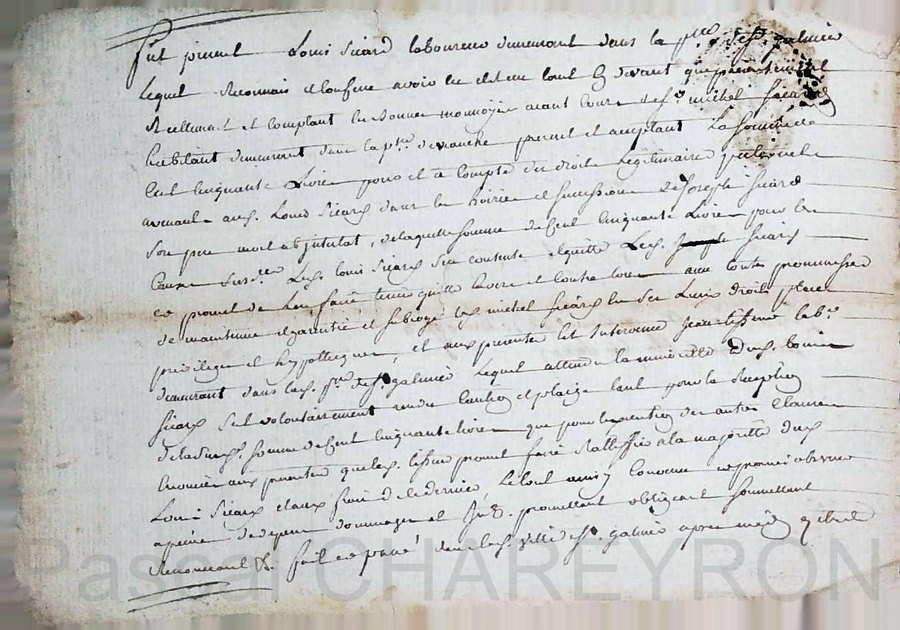 fut présent Louis Sicard laboureur demeurant dans la p.sse de St galmier
Lequel Reconnais et confesse avoir eu et Recu tant cy devant que présentement
Réellement et comptant en bonne monnoye ayant cours de Sr michel Sicard
habitant demeurant dans la p.sse de présent et acceptant La somme de
Cent Cinquante Livres pour et a compte des droits Légitimaires
avenants aud. Louis Sicard dans la hoirie et succession de Joseph Sicard
son pere mort ab jntestat, de laquelle somme de Cent Cinquante Livres pour les
causes Led. Louis Sicard s'en contente et quitte Led. Sicard
et promet de l'en faire tenir quitte Envers et contre tous avec toutes promesses
de maintenue et garentie et subroge led. michel Sicard en ses Lieux droits place
privileges et hypotheques, et aux présentes Est Intervenu Jean lab.r
demeurant dans lad. p.sse de St galmier Lequel attendu la minorité dud. Louis
Sicard s'est volontairement rendu Caution et plaige tant pour la Reception
de la dite somme de Cent Cinquante livres que pour l'execution des autres Clauses
Enoncées aux présentes que led. promet faire Ratiffier a la majorité dud.
Louis Sicard et aux frais de ce dernier, Le tout ainsy Convenu et promis observer
a peine de depens dommages et Int. promettant obligeant soumettant
Renonceant &c. fait et passé dans lad. ville de St galmier apres midy
Pascal CHAREYRON